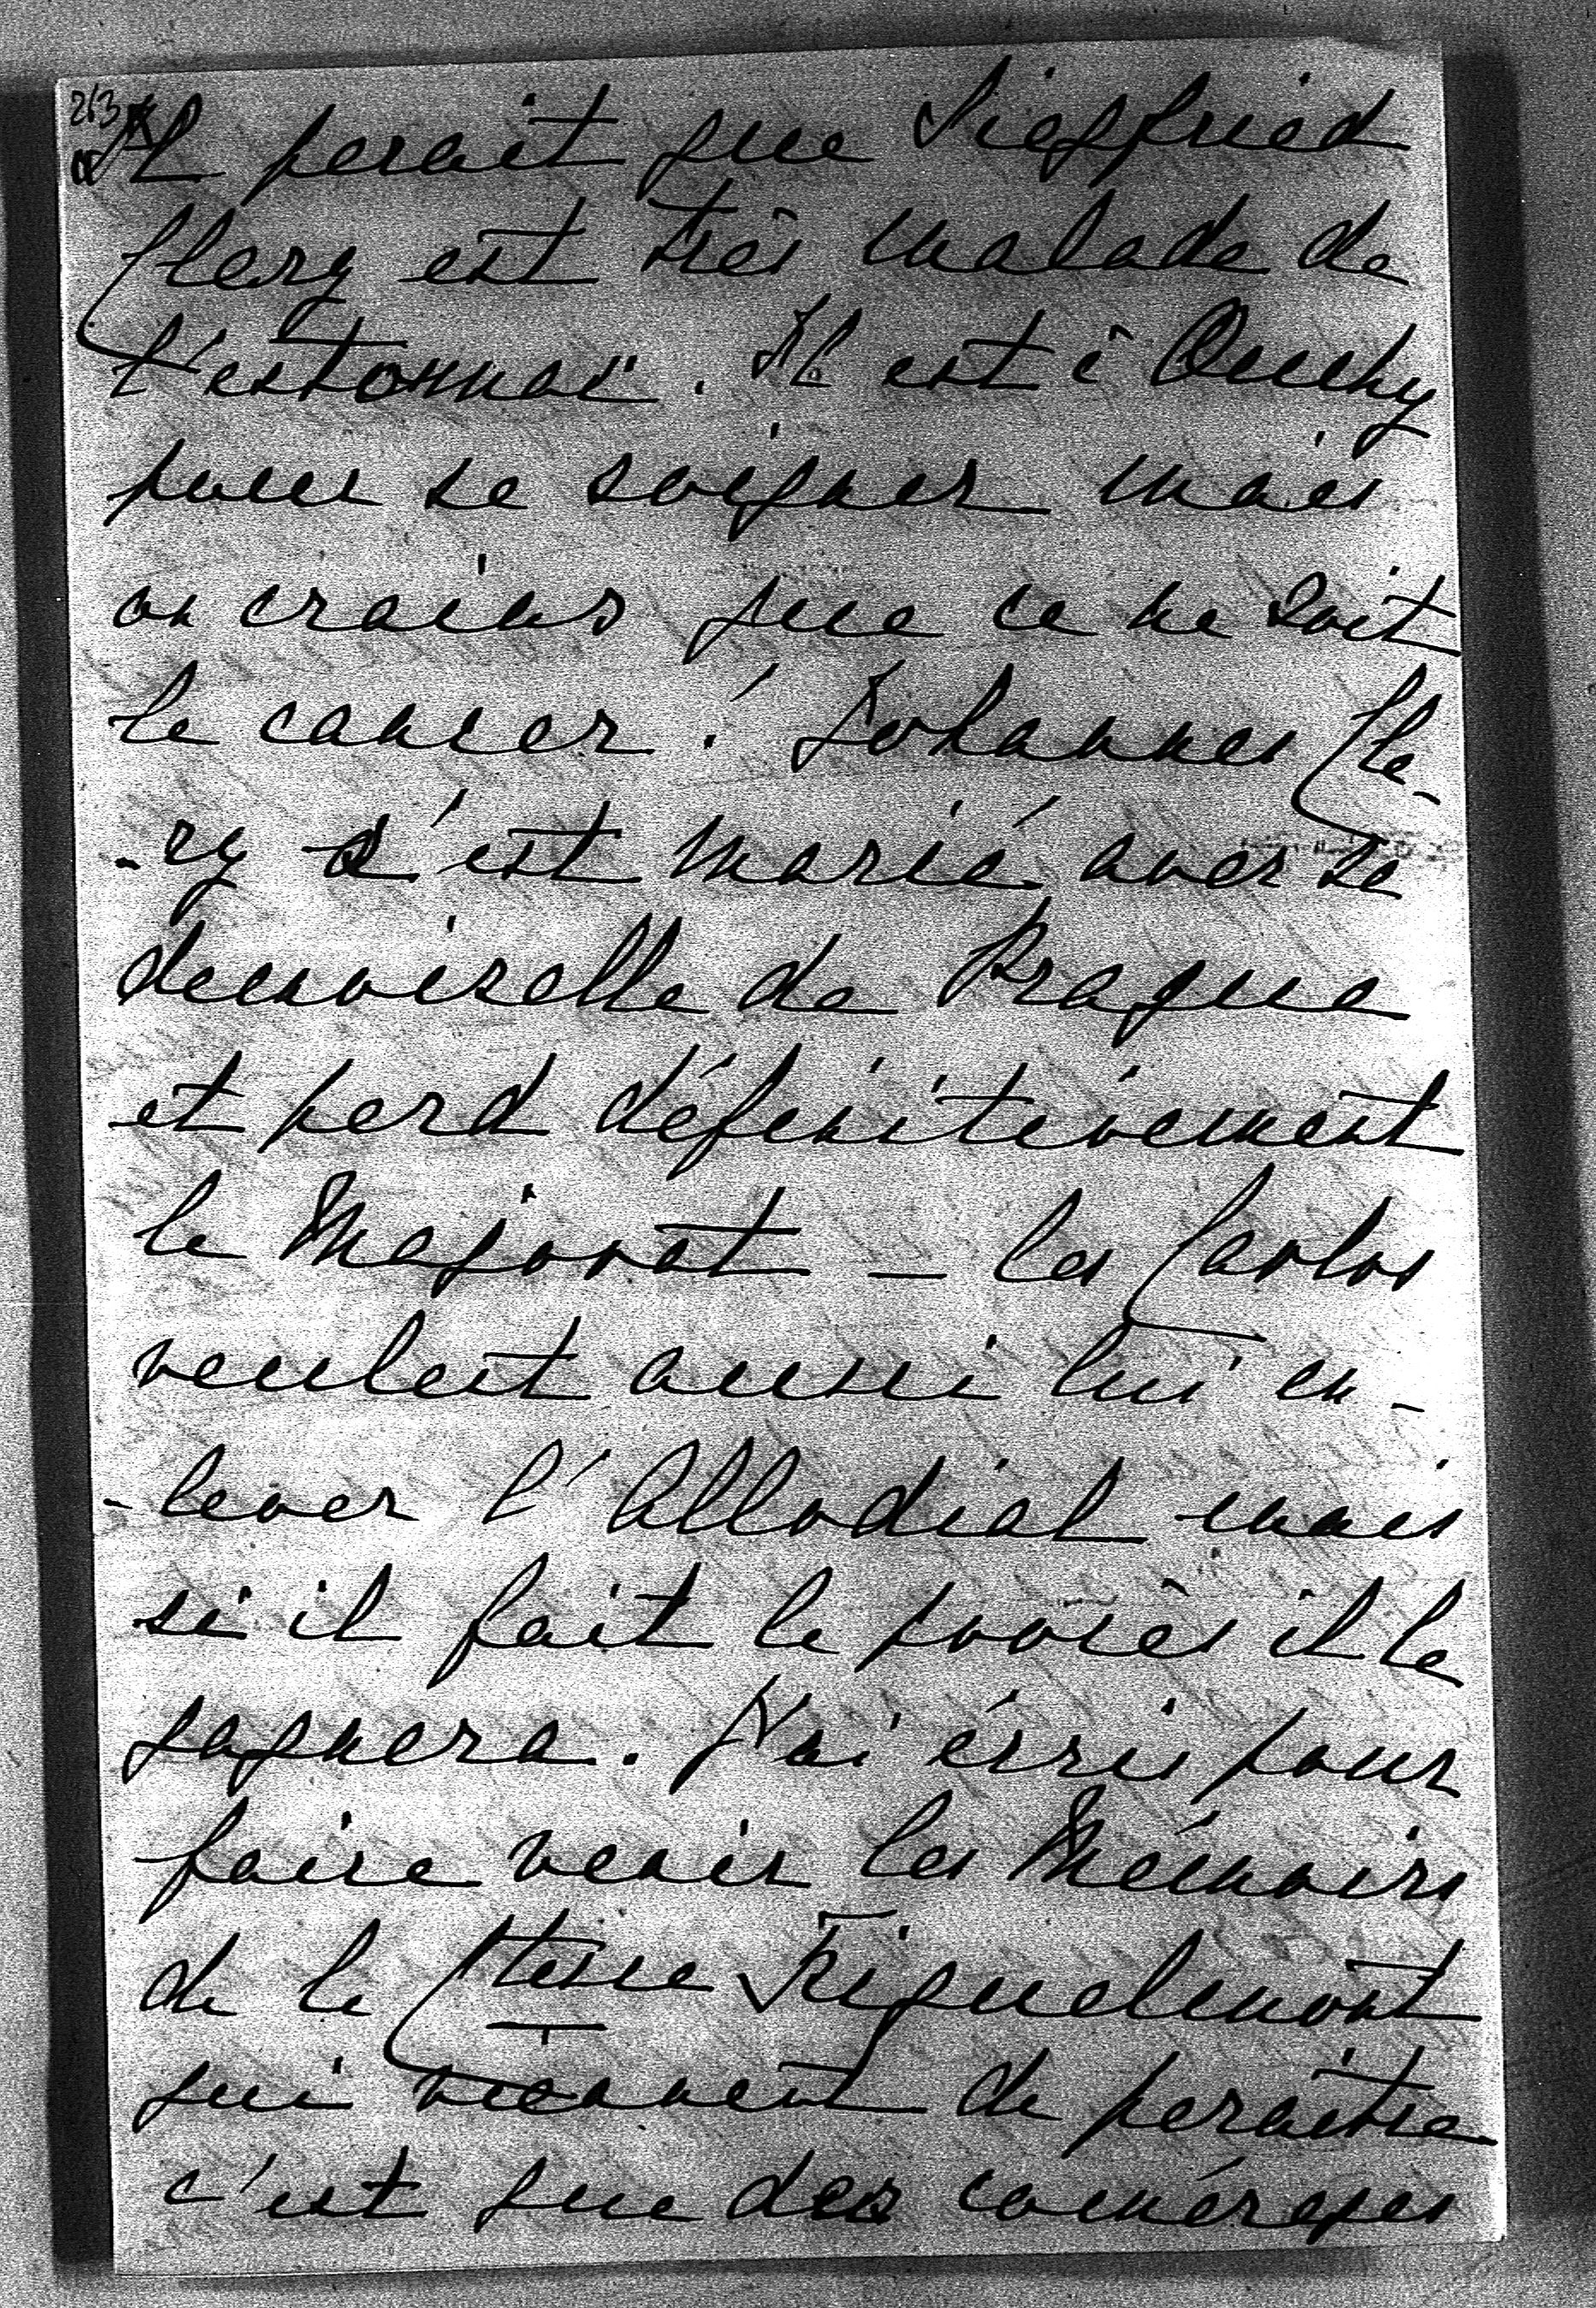 263
Il parait que Siegfried
Clary est très malade de
l'estomac. Il est à Ouchy
pour se soigner mais
on crains que ce ne soit
le cancer! Johannes Cla-
-ry s'est marié avec sa
demoiselle de Prague
et perd définitivement
le Majorat - les Carlos
veulent aussi lui en-
-lever l'Allodial mais
si il fait le procès il le
gagnera. J'ai écris pour
faire venir les Mémoires
de la Ctesse Fiquelmont
qui viennent de paraitre
c'est que des comérages